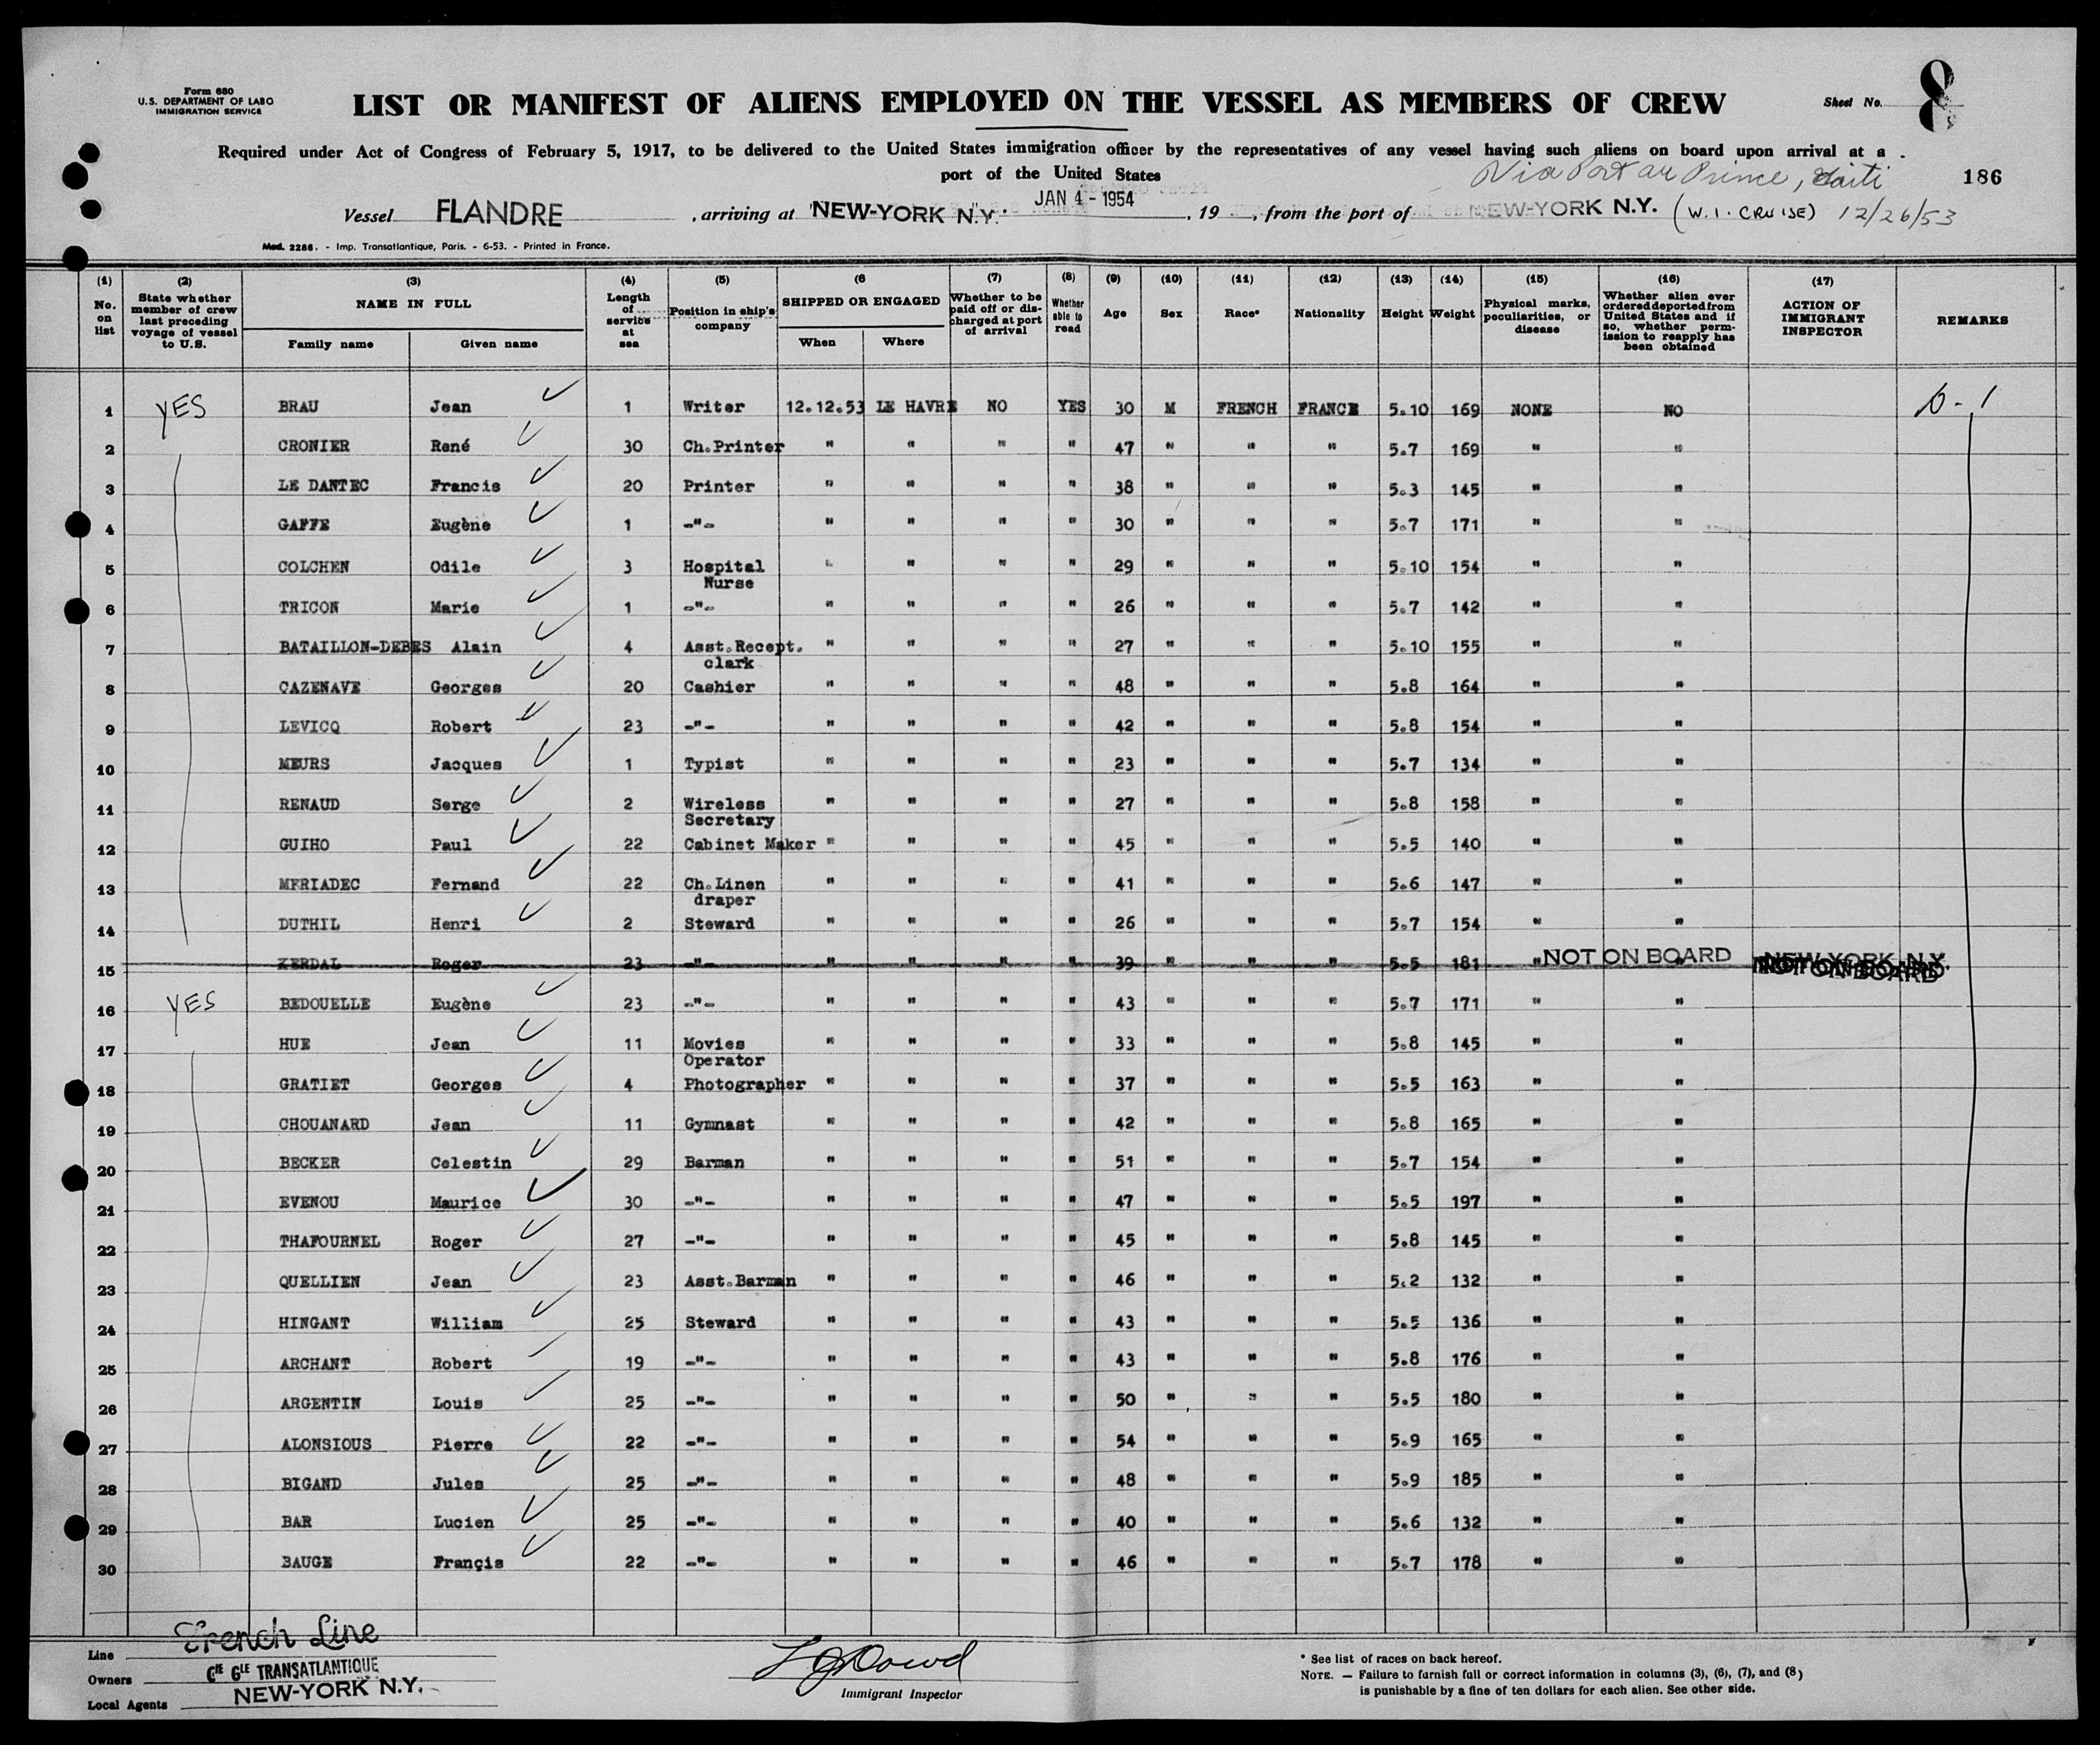 Form 680
U.S. DEPARTMENT OF LABO
IMMIGRATION SERVICE
LIST OR MANIFEST OF ALIENS EMPLOYED ON THE VESSEL AS MEMBERS OF CREW
Sheet No. 8
Required under Act of Congress of February 5, 1917, to be delivered to the United States immigration officer by the representatives of any vessel having such aliens on board upon arrival at a
port of the United States
Via Port au Prince, Haiti
186
Vessel FLANDRE, arriving at NEW-YORK N.Y. JAN 4 - 1954, 19 , from the port of NEW-YORK N.Y. (W.I. CRUISE) 12/26/53
Mod. 2286. - Imp. Transatlantique, Paris. - 6-53. - Printed in France.
(1) No. on list
(2) State whether member of crew last preceding voyage of vessel to U.S.
(3) NAME IN FULL Family name Given name
(4) Length of service at sea
(5) Position in ship's company
(6 SHIPPED OR ENGAGED When Where
(7) Whether to be paid off or discharged at port of arrival
(8) Whether able to read
(9) Age
(10) Sex
(11) Race*
(12) Nationality
(13) Height
(14) Weight
(15) Physical marks, peculiarities, or disease
(16) Whether alien ever ordered deported from United States and if so, whether permission to reapply has been obtained
(17) ACTION OF IMMIGRANT INSPECTOR
REMARKS
1 YES BRAU Jean 1 Writer 12.12.53 LE HAVRE NO YES 30 M FRENCH FRANCE 5.10 169 NONE NO
2 CRONIER René 30 Ch.Printer " " " " 47 " " " 5.7 169 " "
3 LE DANTEC Francis 20 Printer " " " " 38 " " " 5.3 145 " "
4 GAFFE Eugène 1 -"- " " " " 30 " " " 5.7 171 " "
5 COLCHEN Odile 3 Hospital Nurse " " " " 29 " " " 5.10 154 " "
6 TRICON Marie 1 -"- " " " " 26 " " " 5.7 142 " "
7 BATAILLON-DEBES Alain 4 Asst.Recept. clark " " " " 27 " " " 5.10 155 " "
8 CAZENAVE Georges 20 Cashier " " " " 48 " " " 5.8 164 " "
9 LEVICQ Robert 23 -"- " " " " 42 " " " 5.8 154 " "
10 MEURS Jacques 1 Typist " " " " 23 " " " 5.7 134 " "
11 RENAUD Serge 2 Wireless Secretary " " " " 27 " " " 5.8 158 " "
12 GUIHO Paul 22 Cabinet Maker " " " " 45 " " " 5.5 140 " "
13 MERIADEC Fernand 22 Ch.Linen draper " " " " 41 " " " 5.6 147 " "
14 DUTHIL Henri 2 Steward " " " " 26 " " " 5.7 154 " "
15 KERDAL Roger 23 -"- " " " " 39 " " " 5.5 181 " NOT ON BOARD " NEW-YORK N.Y. NOT ON BOARD
16 YES BEDOUELLE Eugène 23 -"- " " " " 43 " " " 5.7 171 " "
17 HUE Jean 11 Movies Operator " " " " 33 " " " 5.8 145 " "
18 GRATIET Georges 4 Photographer " " " " 37 " " " 5.5 163 " "
19 CHOUANARD Jean 11 Gymnast " " " " 42 " " " 5.8 165 " "
20 BECKER Celestin 29 Barman " " " " 51 " " " 5.7 154 " "
21 EVENOU Maurice 30 -"- " " " " 47 " " " 5.5 197 " "
22 THAFOURNEL Roger 27 -"- " " " " 45 " " " 5.8 145 " "
23 QUELLIEN Jean 23 Asst.Barman " " " " 46 " " " 5.2 132 " "
24 HINGANT William 25 Steward " " " " 43 " " " 5.5 136 " "
25 ARCHANT Robert 19 -"- " " " " 43 " " " 5.8 176 " "
26 ARGENTIN Louis 25 -"- " " " " 50 " " " 5.5 180 " "
27 ALONSIOUS Pierre 22 -"- " " " " 54 " " " 5.9 165 " "
28 BIGAND Jules 25 -"- " " " " 48 " " " 5.9 185 " "
29 BAR Lucien 25 -"- " " " " 40 " " " 5.6 132 " "
30 BAUGE Françis 22 -"- " " " " 46 " " " 5.7 178 " "
Line French Line
Owners Cie Gle TRANSATLANTIQUE
Local Agents NEW-YORK N.Y.
Immigrant Inspector
* See list of races on back hereof.
NOTE. — Failure to furnish full or correct information in columns (3), (6), (7), and (8)
is punishable by a fine of ten dollars for each alien. See other side.